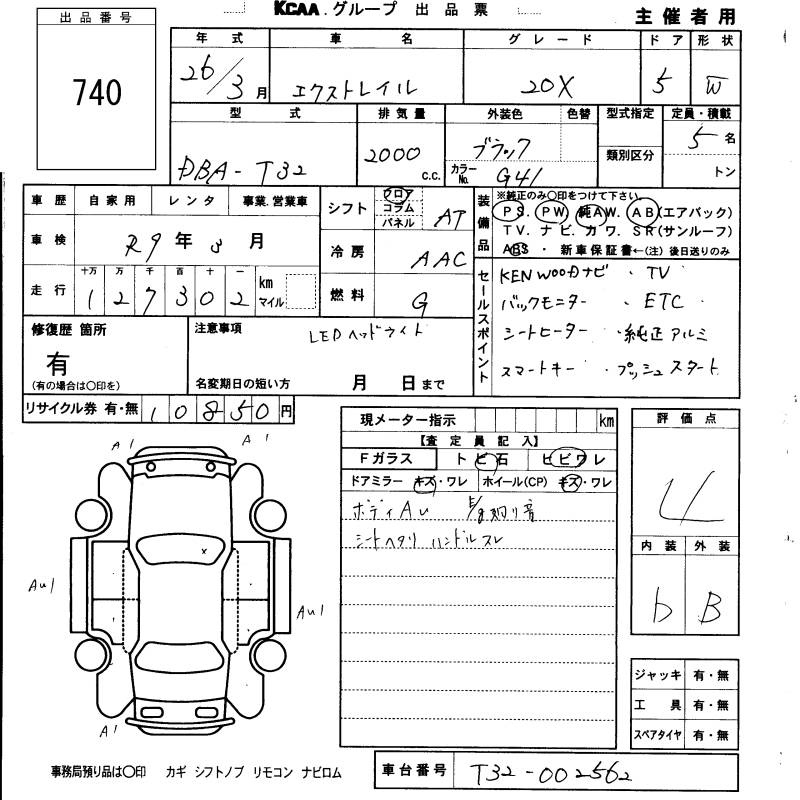 KCAA.グループ 出品票
主催者用
出品番号
740
年式 車名 グレード ドア 形状
26/3月 エクストレイル 20X 5 W
型式 排気量 外装色 色替 型式指定 定員・積載
DBA-T32 2000 c.c. ブラック 類別区分 5名
カラーNo. G41 トン
車歴 自家用 レンタ 事業.営業車
シフト フロア コラム パネル AT
装備品 ※純正のみ〇印をつけて下さい。
PS. PW 純AW. AB(エアバック)
TV. ナビ. カワ. SR(サンルーフ)
ABS・新車保証書←(注)後日送りのみ
車検 R9年3月
冷房 AAC
走行 十万 万 千 百 十 一
127302 km マイル
燃料 G
セールスポイント
KENWOODナビ・TV
バックモニター・ETC
シートヒーター・純正アルミ
スマートキー・プッシュスタート
修復歴 箇所
有
(有の場合は〇印を)
注意事項 LEDヘッドライト
名変期日の短い方 月 日まで
リサイクル券 有・無 10850円
現メーター指示 km
【査定員記入】
Fガラス トビ石 ヒビワレ
ドアミラー キズ・ワレ ホイール(CP) キズ・ワレ
ボディAu
シートヘタリ ハンドルスレ
評価点
4
内装 外装
b B
A1 A1
x
Au1 Au1
A1
ジャッキ 有・無
工具 有・無
スペアタイヤ 有・無
事務局預り品は〇印 カギ シフトノブ リモコン ナビロム
車台番号 T32-002562